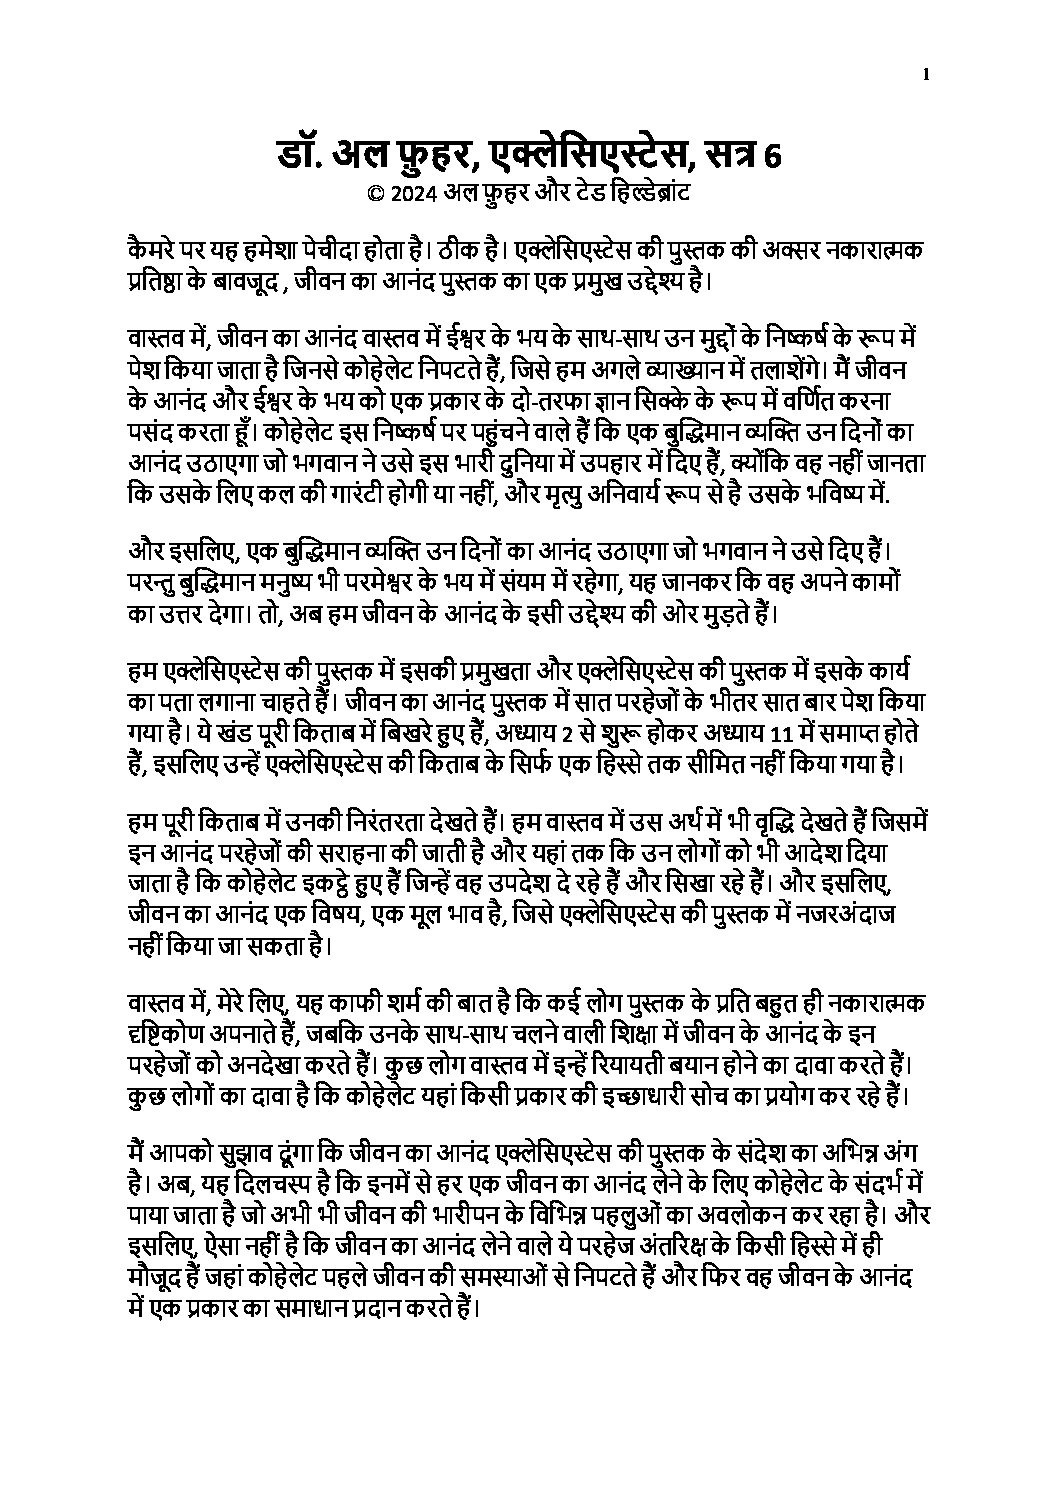 1
डॉ. अल फ़ुहर, एक्लेसिएस्टेस, सत्र 6
© 2024 अल फ़ुहर और टेड हिल्डेब्रांट
कैमरे पर यह हमेशा पेचीदा होता है। ठीक है। एक्लेसिएस्टेस की पुस्तक की अक्सर नकारात्मक
प्रतिष्ठा के बावजूद , जीवन का आनंद पुस्तक का एक प्रमुख उद्देश्य है।
वास्तव में, जीवन का आनंद वास्तव में ईश्वर के भय के साथ-साथ उन मुद्दों के निष्कर्ष के रूप में
पेश किया जाता है जिनसे कोहेलेट निपटते हैं, जिसे हम अगले व्याख्यान में तलाशेंगे। मैं जीवन
के आनंद और ईश्वर के भय को एक प्रकार के दो-तरफा ज्ञान सिक्के के रूप में वर्णित करना
पसंद करता हूँ। कोहेलेट इस निष्कर्ष पर पहुंचने वाले हैं कि एक बुद्धिमान व्यक्ति उन दिनों का
आनंद उठाएगा जो भगवान ने उसे इस भारी दुनिया में उपहार में दिए हैं, क्योंकि वह नहीं जानता
कि उसके लिए कल की गारंटी होगी या नहीं, और मृत्यु अनिवार्य रूप से है उसके भविष्य में.
और इसलिए, एक बुद्धिमान व्यक्ति उन दिनों का आनंद उठाएगा जो भगवान ने उसे दिए हैं।
परन्तु बुद्धिमान मनुष्य भी परमेश्वर के भय में संयम में रहेगा, यह जानकर कि वह अपने कामों
का उत्तर देगा। तो, अब हम जीवन के आनंद के इसी उद्देश्य की ओर मुड़ते हैं।
हम एक्लेसिएस्टेस की पुस्तक में इसकी प्रमुखता और एक्लेसिएस्टेस की पुस्तक में इसके कार्य
का पता लगाना चाहते हैं। जीवन का आनंद पुस्तक में सात परहेजों के भीतर सात बार पेश किया
गया है। ये खंड पूरी किताब में बिखरे हुए हैं, अध्याय 2 से शुरू होकर अध्याय 11 में समाप्त होते
हैं, इसलिए उन्हें एक्लेसिएस्टेस की किताब के सिर्फ एक हिस्से तक सीमित नहीं किया गया है।
हम पूरी किताब में उनकी निरंतरता देखते हैं। हम वास्तव में उस अर्थ में भी वृद्धि देखते हैं जिसमें
इन आनंद परहेजों की सराहना की जाती है और यहां तक कि उन लोगों को भी आदेश दिया
जाता है कि कोहेलेट इकट्ठे हुए हैं जिन्हें वह उपदेश दे रहे हैं और सिखा रहे हैं। और इसलिए,
जीवन का आनंद एक विषय, एक मूल भाव है, जिसे एक्लेसिएस्टेस की पुस्तक में नजरअंदाज
नहीं किया जा सकता है।
वास्तव में, मेरे लिए, यह काफी शर्म की बात है कि कई लोग पुस्तक के प्रति बहुत ही नकारात्मक
दृष्टिकोण अपनाते हैं, जबकि उनके साथ-साथ चलने वाली शिक्षा में जीवन के आनंद के इन
परहेजों को अनदेखा करते हैं। कुछ लोग वास्तव में इन्हें रियायती बयान होने का दावा करते हैं।
कुछ लोगों का दावा है कि कोहेलेट यहां किसी प्रकार की इच्छाधारी सोच का प्रयोग कर रहे हैं।
मैं आपको सुझाव दूंगा कि जीवन का आनंद एक्लेसिएस्टेस की पुस्तक के संदेश का अभिन्न अंग
है। अब, यह दिलचस्प है कि इनमें से हर एक जीवन का आनंद लेने के लिए कोहेलेट के संदर्भ में
पाया जाता है जो अभी भी जीवन की भारीपन के विभिन्न पहलुओं का अवलोकन कर रहा है। और
इसलिए, ऐसा नहीं है कि जीवन का आनंद लेने वाले ये परहेज अंतरिक्ष के किसी हिस्से में ही
मौजूद हैं जहां कोहेलेट पहले जीवन की समस्याओं से निपटते हैं और फिर वह जीवन के आनंद
में एक प्रकार का समाधान प्रदान करते हैं।